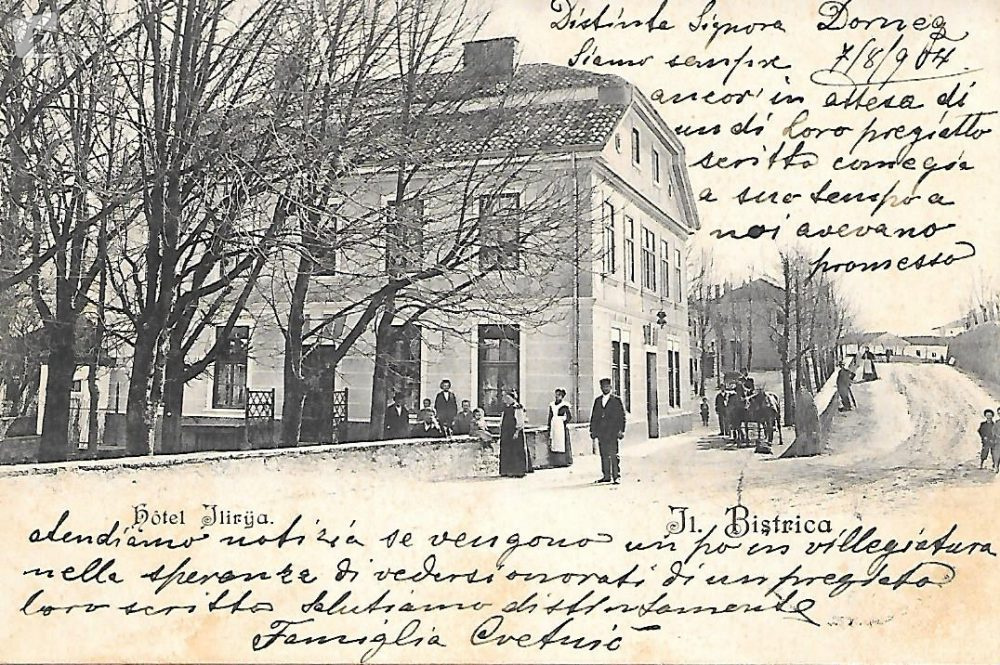 Distinte Signora Dorneg
Siamo sempre 7/8/904.
ancor' in attesa di
un di Loro pregiatto
scritto comegia
a suo tempo a
noi avevano
promesso
Hôtel Ilirija.
Il. Bistrica
atendiamo notizia se vengono un po in villegiatura
nella speranza di vedersi onorati di un pregiato
loro scritto Salutiamo distintamente
Famiglia Cvetnić